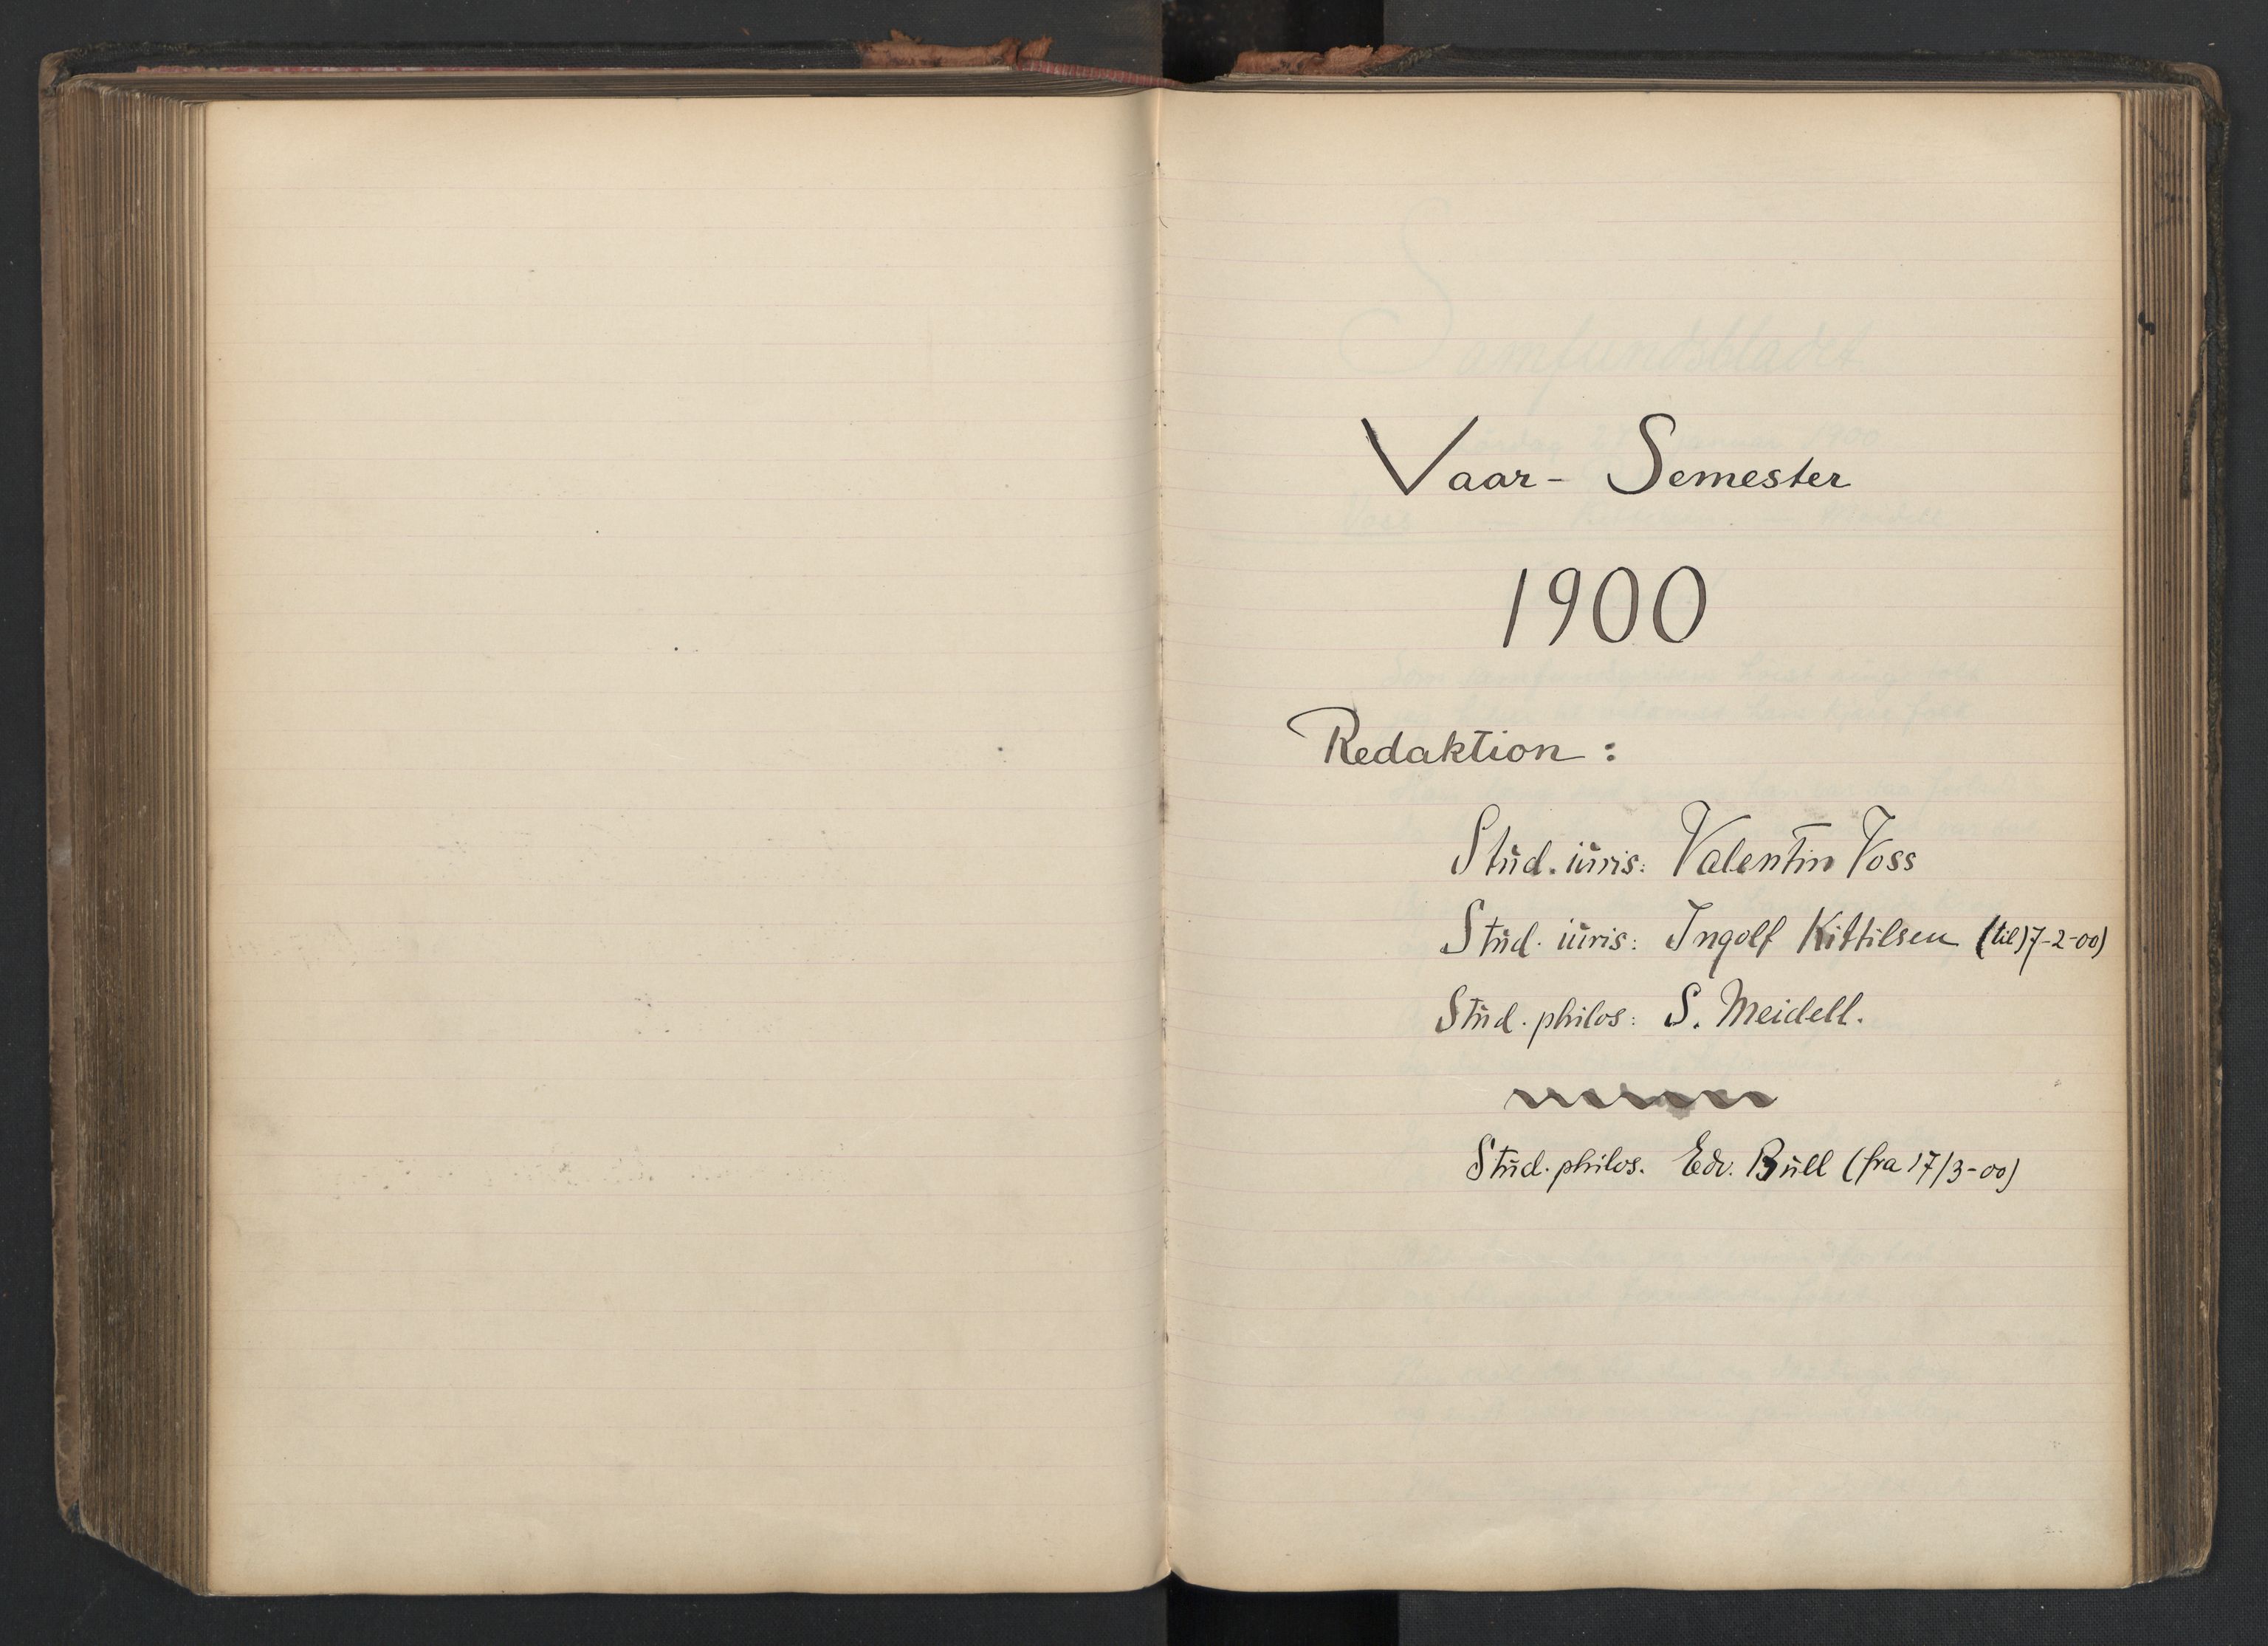 Vaar- Semester
1900
Redaktion:
Stud. iuris: Valentin Voss
Stud. iuris: Ingolf Kittilsen (til 17-2-00)
Stud. philos: S. Meidell.
Stud. philos. Edv. Bull (fra 17/3-00)